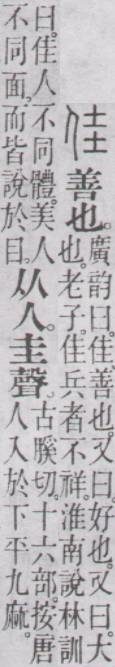 佳 善也。廣韵曰。佳善也。又曰。好也。又曰。大
也。老子。佳兵者不祥。淮南說林訓
曰。佳人不同體。美人
不同面。而皆說於目。
从人。圭聲。古膎切。十六部。按唐
人入於下平九麻。